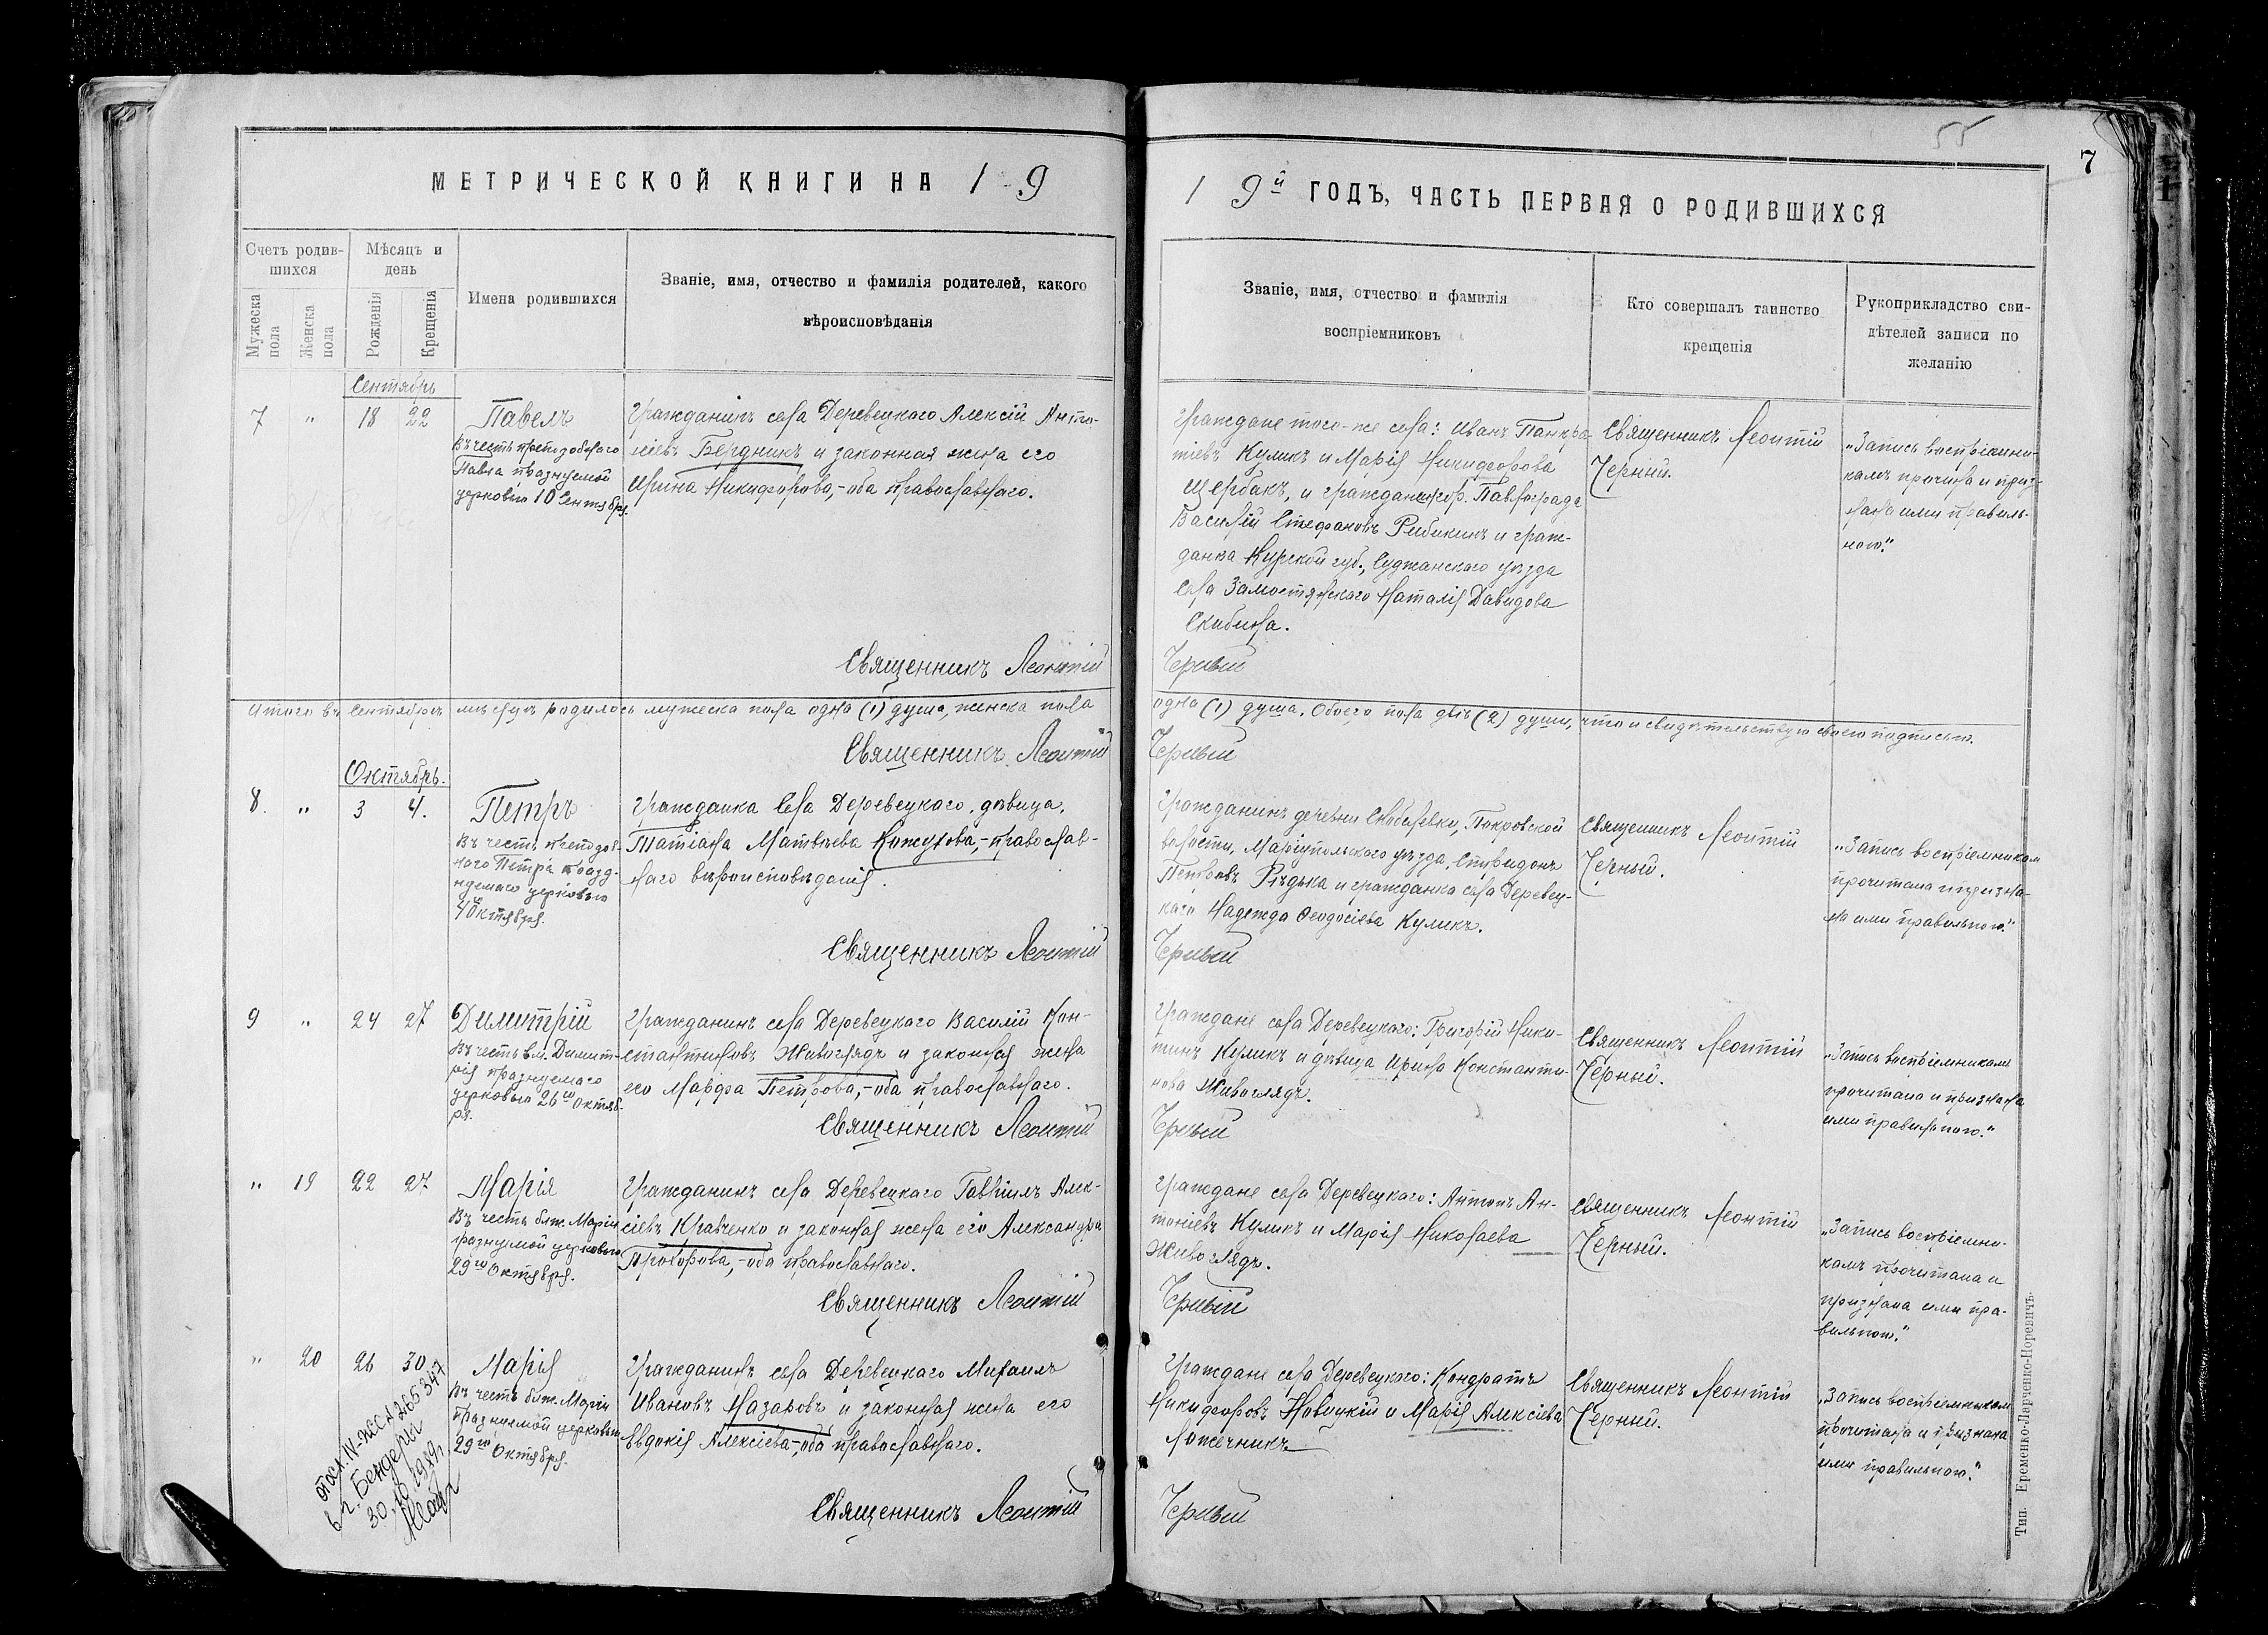 55
7
МЕТРИЧЕСКОЙ КНИГИ НА 1 9
1 9й ГОДЪ, ЧАСТЬ ПЕРВАЯ О РОДИВШИХСЯ
Счетъ родив-
шихся
Мѣсяцъ и
день
Мужеска
пола
Женска
пола
Рожденія
Крещенія
Имена родившихся
Званіе, имя, отчество и фамилія родителей, какого
вѣроисповѣданія
Званіе, имя, отчество и фамилія
воспріемниковъ
Кто совершалъ таинство
крещенія
Рукоприкладство сви-
дѣтелей записи по
желанію
Сентябрь
7 " 18 22
Павелъ
Въ честь преподобнаго
Павла празднуемой
церковью 10 Сентября.
Гражданинъ села Деревецкаго Алексій Анто-
ніевъ Бердникъ и законная жена его
Ирина Никифорова,-оба православнаго.
Граждане того-же села: Иванъ Панкра-
тіевъ Куликъ и Марія Никифорова
Щербакъ, и гражданинъ гор. Павлограда
Василій Стефановъ Рибикинъ и граж-
данка Курской губ., Суджанскаго уѣзда
села Замостянскаго Наталія Давидова
Скибина.
Священникъ Леонтій
Черный.
"Запись воспріемни-
камъ прочитана и приз-
нана ими правиль-
ною."
Священникъ Леонтій Черный
Итого въ Сентябрѣ мѣсяцѣ родилось мужеска пола одна (1) душа, женска пола
одна (1) душа. Обоего пола двѣ (2) души, что и свидѣтельствую своею подписью.
Священникъ Леонтій Черный
Октябрь.
8. " 3 4.
Петръ
Въ честь преподоб-
наго Петра празд-
нуемаго церковью
4го Октября.
Гражданка села Деревецкаго, дѣвица,
Татіана Матвѣева Кожухова,-православ-
наго вѣроисповѣданія.
Гражданинъ деревни Скобелевки, Покровской
волости, Маріупольскаго уѣзда, Спиридонъ
Петровъ Рѣдька и гражданка села Деревец-
каго Надежда Ѳеодосіева Куликъ.
Священникъ Леонтій
Черный.
"Запись воспріемникам
прочитана и призна-
на ими правильною."
Священникъ Леонтій Черный
9 " 24 27
Димитрій
Въ честь вм. Димит-
рія празднуемаго
церковью 26го Октяб-
ря.
Гражданинъ села Деревецкаго Василій Кон-
стантиновъ Живоглядъ и законная жена
его Марфа Петрова,-оба православнаго.
Граждане села Деревецкаго: Григорій Ники-
тинъ Куликъ и дѣвица Ирина Константи-
нова Живоглядъ.
Священникъ Леонтій
Черный.
"Запись воспріемникамъ
прочитана и признана
ими правильною."
Священникъ Леонтій Черный
" 19 22 27
Марія
Въ честь блж. Маріи
празнуемой церковью
29го Октября.
Гражданинъ села Деревецкаго Гавріилъ Алек-
сіевъ Кравченко и законная жена его Александра
Прохорова,-оба православнаго.
Граждане села Деревецкаго: Антонъ Ан-
тоніевъ Куликъ и Марія Николаева
Живоглядъ.
Священникъ Леонтій
Черный.
"Запись воспріемни-
камъ прочитана и
признана ими пра-
вильною."
Священникъ Леонтій Черный
" 20 26 30
Марія
Въ честь блж. Маріи
празднуемой церковью
29го Октября.
Гражданинъ села Деревецкаго Михаилъ
Ивановъ Назаровъ и законная жена его
Евдокія Алексіева,-оба православнаго.
Граждане села Деревецкаго: Кондратъ
Никифоровъ Новицкій и Марія Алексіева
Ложечникъ
Священникъ Леонтій
Черный.
"Запись воспріемникам
прочитана и признана
ими правильною."
Священникъ Леонтій Черный
265347
в г. Бендеры
30.10.
Тип. Еременко-Ларченко-Норевичъ.